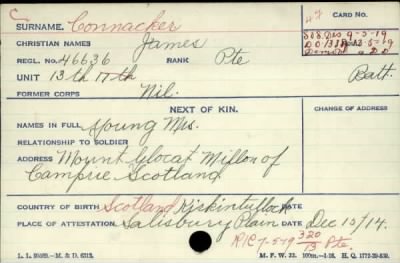 C
SURNAME. Connacker
47 CARD No.
CHRISTIAN NAMES James
S.O.S. Dis 9-5-19
REGL. NO. 46636 RANK Pte
UNIT 13th 17th Batt.
FORMER CORPS Nil.
NEXT OF KIN.
CHANGE OF ADDRESS
NAMES IN FULL Young Mrs.
RELATIONSHIP TO SOLDIER
ADDRESS Mount Glocat Milton of
Campsie Scotland
COUNTRY OF BIRTH Scotland Kirkintullock DATE
PLACE OF ATTESTATION. Salisbury Plain DATE Dec 15/14.
R/C 7-5-19 320/13 Pte.
L. L. 25469.—M. & D. 6313.
M. F. W. 33. H. Q. 1772-39-839.